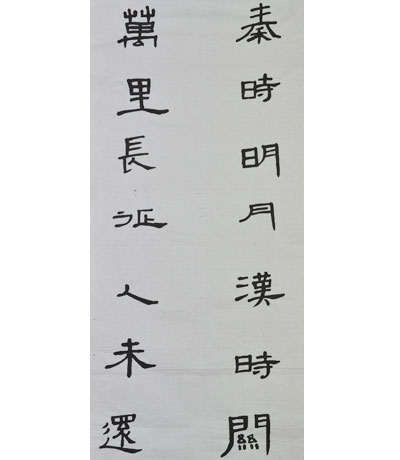 秦時明月漢時關
萬里長征人未還